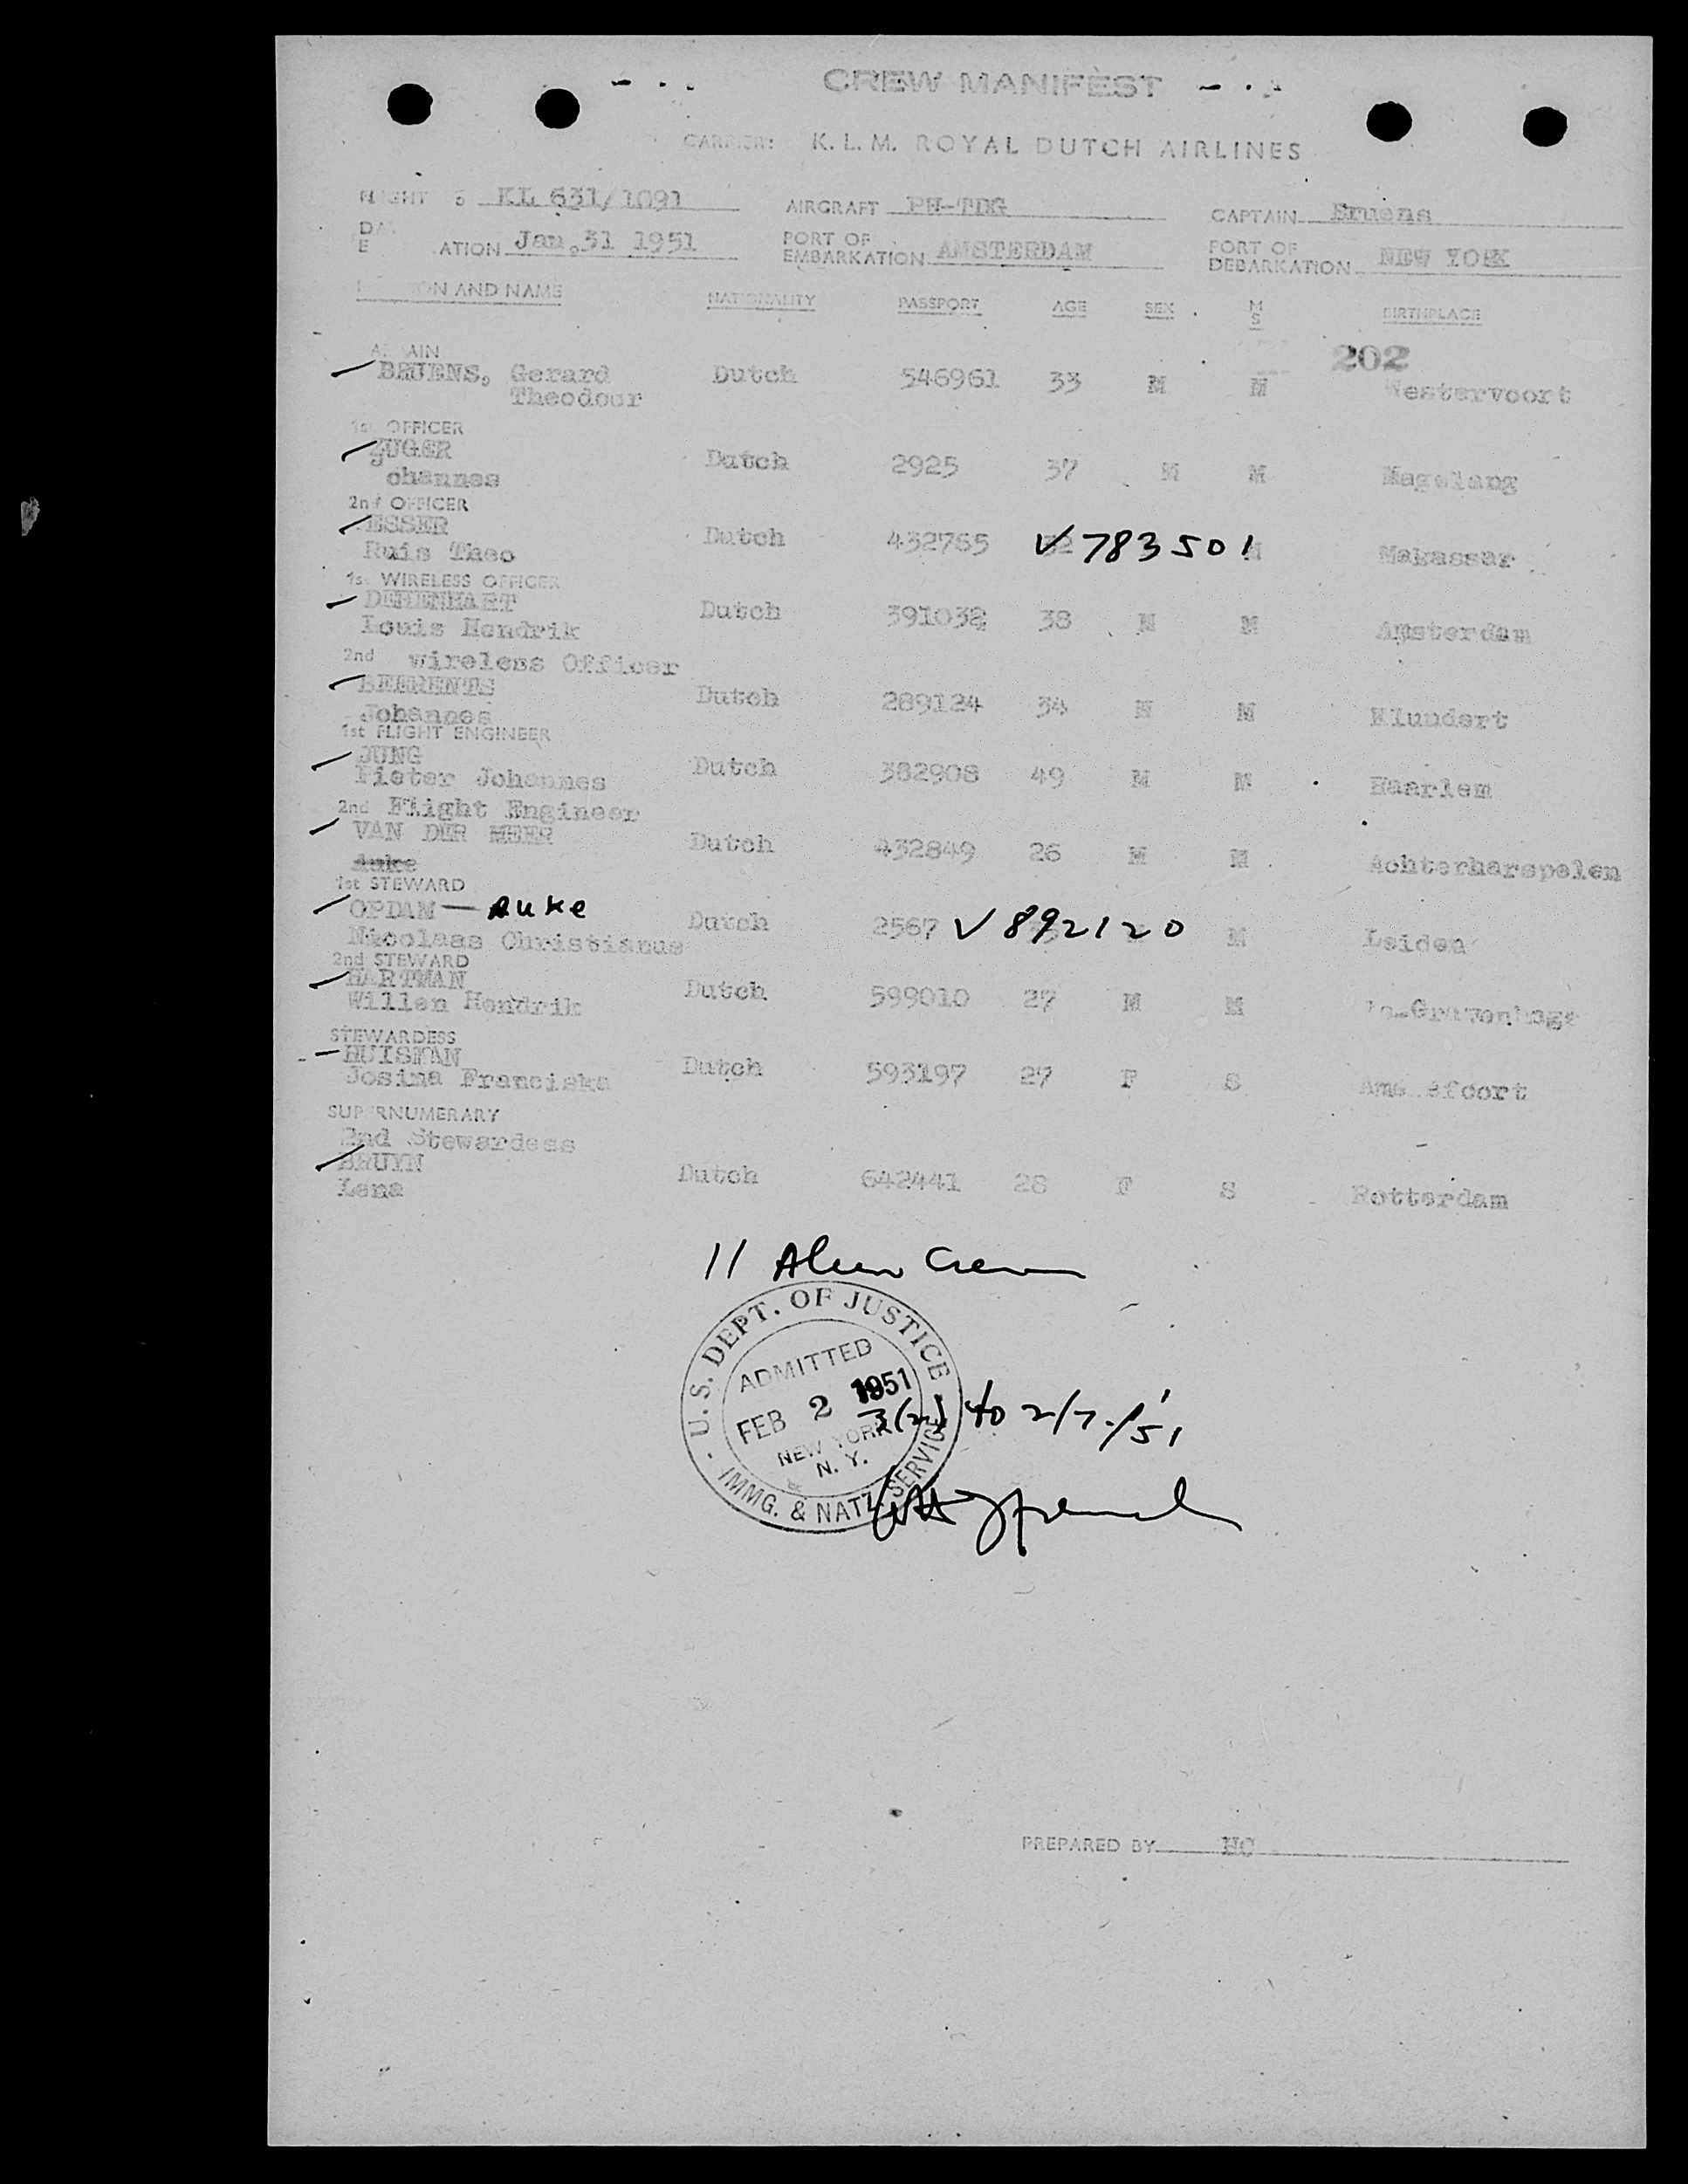 CREW MANIFEST
CARRIER: K. L. M. ROYAL DUTCH AIRLINES
KL 631/1091 AIRCRAFT PH-TDG CAPTAIN Bruens
ATION Jan. 31 1951 PORT OF EMBARKATION AMSTERDAM PORT OF DEBARKATION NEW YORK
N AND NAME NATIONALITY PASSPORT AGE SEX M S BIRTHPLACE
202
AIN
BRUENS, Gerard Dutch 546961 33 M M Westervoort
Theodoor
1st OFFICER
ZUGER Dutch 2925 37 M M Magelang
ohannes
2nd OFFICER
ESSER Dutch 432765 V783501 M Makassar
Ruis Theo
1st WIRELESS OFFICER
Dutch 391032 38 M M Amsterdam
Louis Hendrik
2nd wireless Officer
Dutch 289124 34 M M Klundert
Johannes
1st FLIGHT ENGINEER
JUNG Dutch 382908 49 M M Haarlem
Pieter Johannes
2nd Flight Engineer
VAN DER MEER Dutch 432849 26 M M Achterharspelen
Auke
1st STEWARD
OPDAM — Auke Dutch 2567 V892120 M Leiden
Nicolaas Christianus
2nd STEWARD
HARTMAN Dutch 599010 27 M M
Willen Hendrik
STEWARDESS
HUISMAN Dutch 593197 27 F S Amersfoort
Josima Franciska
SUPERNUMERARY
2nd Stewardess
BRUYN Dutch 642441 28 F S Rotterdam
Lena
11 Alien Crew
U.S. DEPT. OF JUSTICE
ADMITTED
FEB 2 1951
3(2) to 2/7/51
NEW YORK
N. Y.
IMMG. & NATZ. SERVICE
PREPARED BY HC